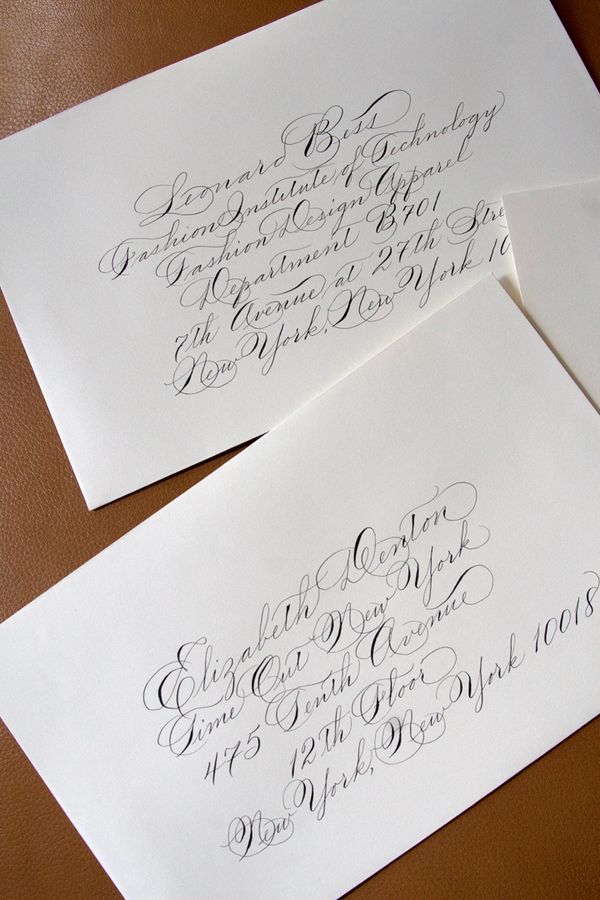 Leonard Bess
Fashion Institute of Technology
Fashion Design Apparel
Department B701
7th Avenue at 27th Stre
New York, New York 10
Elizabeth Denton
Time Out New York
475 Tenth Avenue
12th Floor
New York, New York 10018